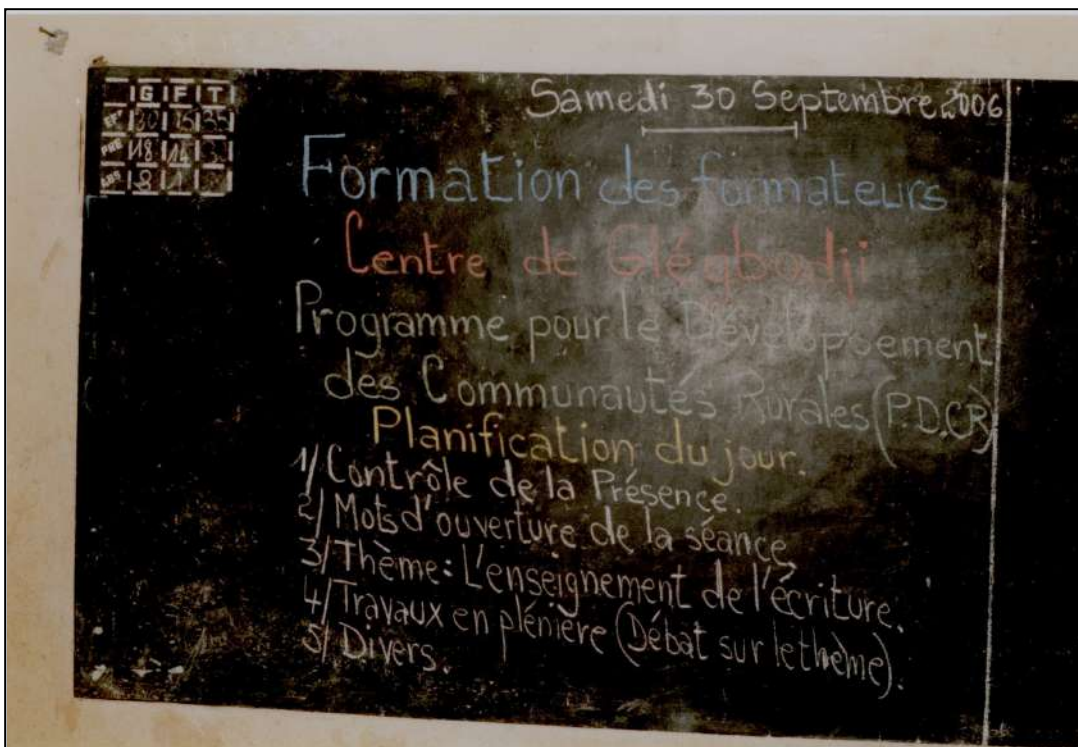 G F T
EF
PRE 18 14
ABS
Samedi 30 Septembre 2006
Formation des formateurs
Centre de Glégbodji
Programme pour le Développement
des Communautés Rurales (P.D.CR)
Planification du jour.
1/ Contrôle de la Présence.
2/ Mots d'ouverture de la séance
3/ Thème: L'enseignement de l'écriture.
4/ Travaux en plénière (Débat sur le thème).
5/ Divers.